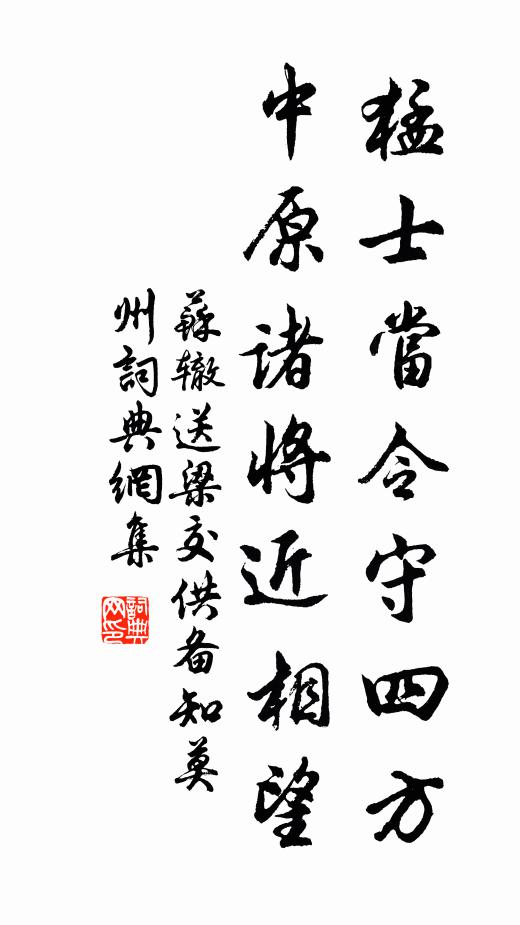 猛士當令守四方
中原諸將近相望
蘇辙送梁交供备知莫
州詞典網集
詞典
网印